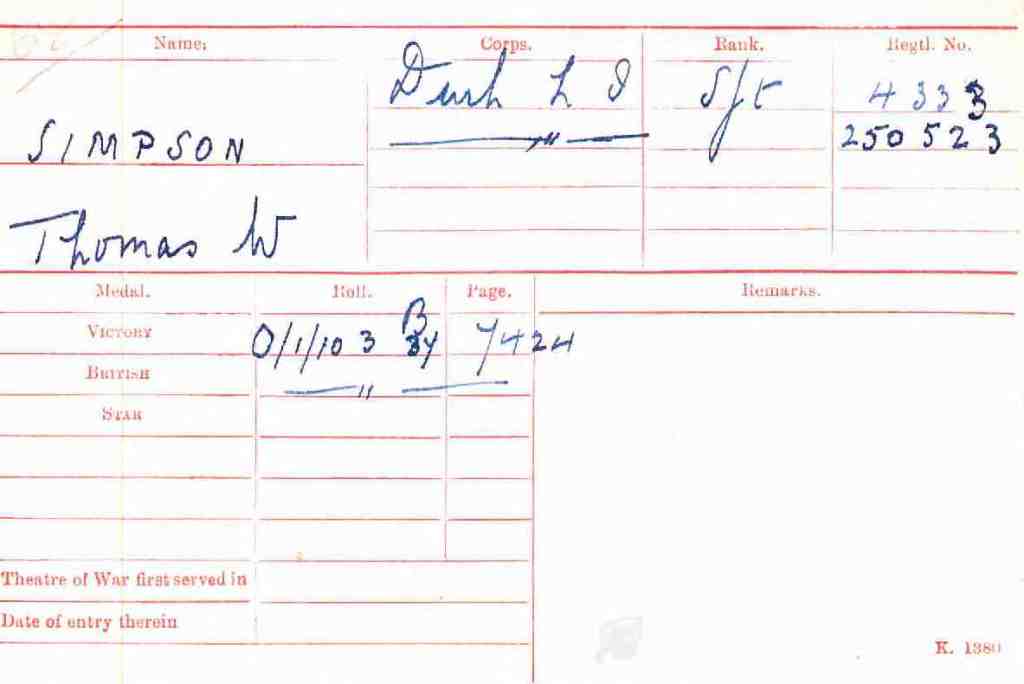 Name. Corps. Rank. Regtl. No.
Durh L I Sjt 4333
SIMPSON —"— 250523
Thomas W
Medal. Roll. Page. Remarks.
VICTORY O/1/103 B 7424
BRITISH —"—
STAR
Theatre of War first served in
Date of entry therein
K. 1380